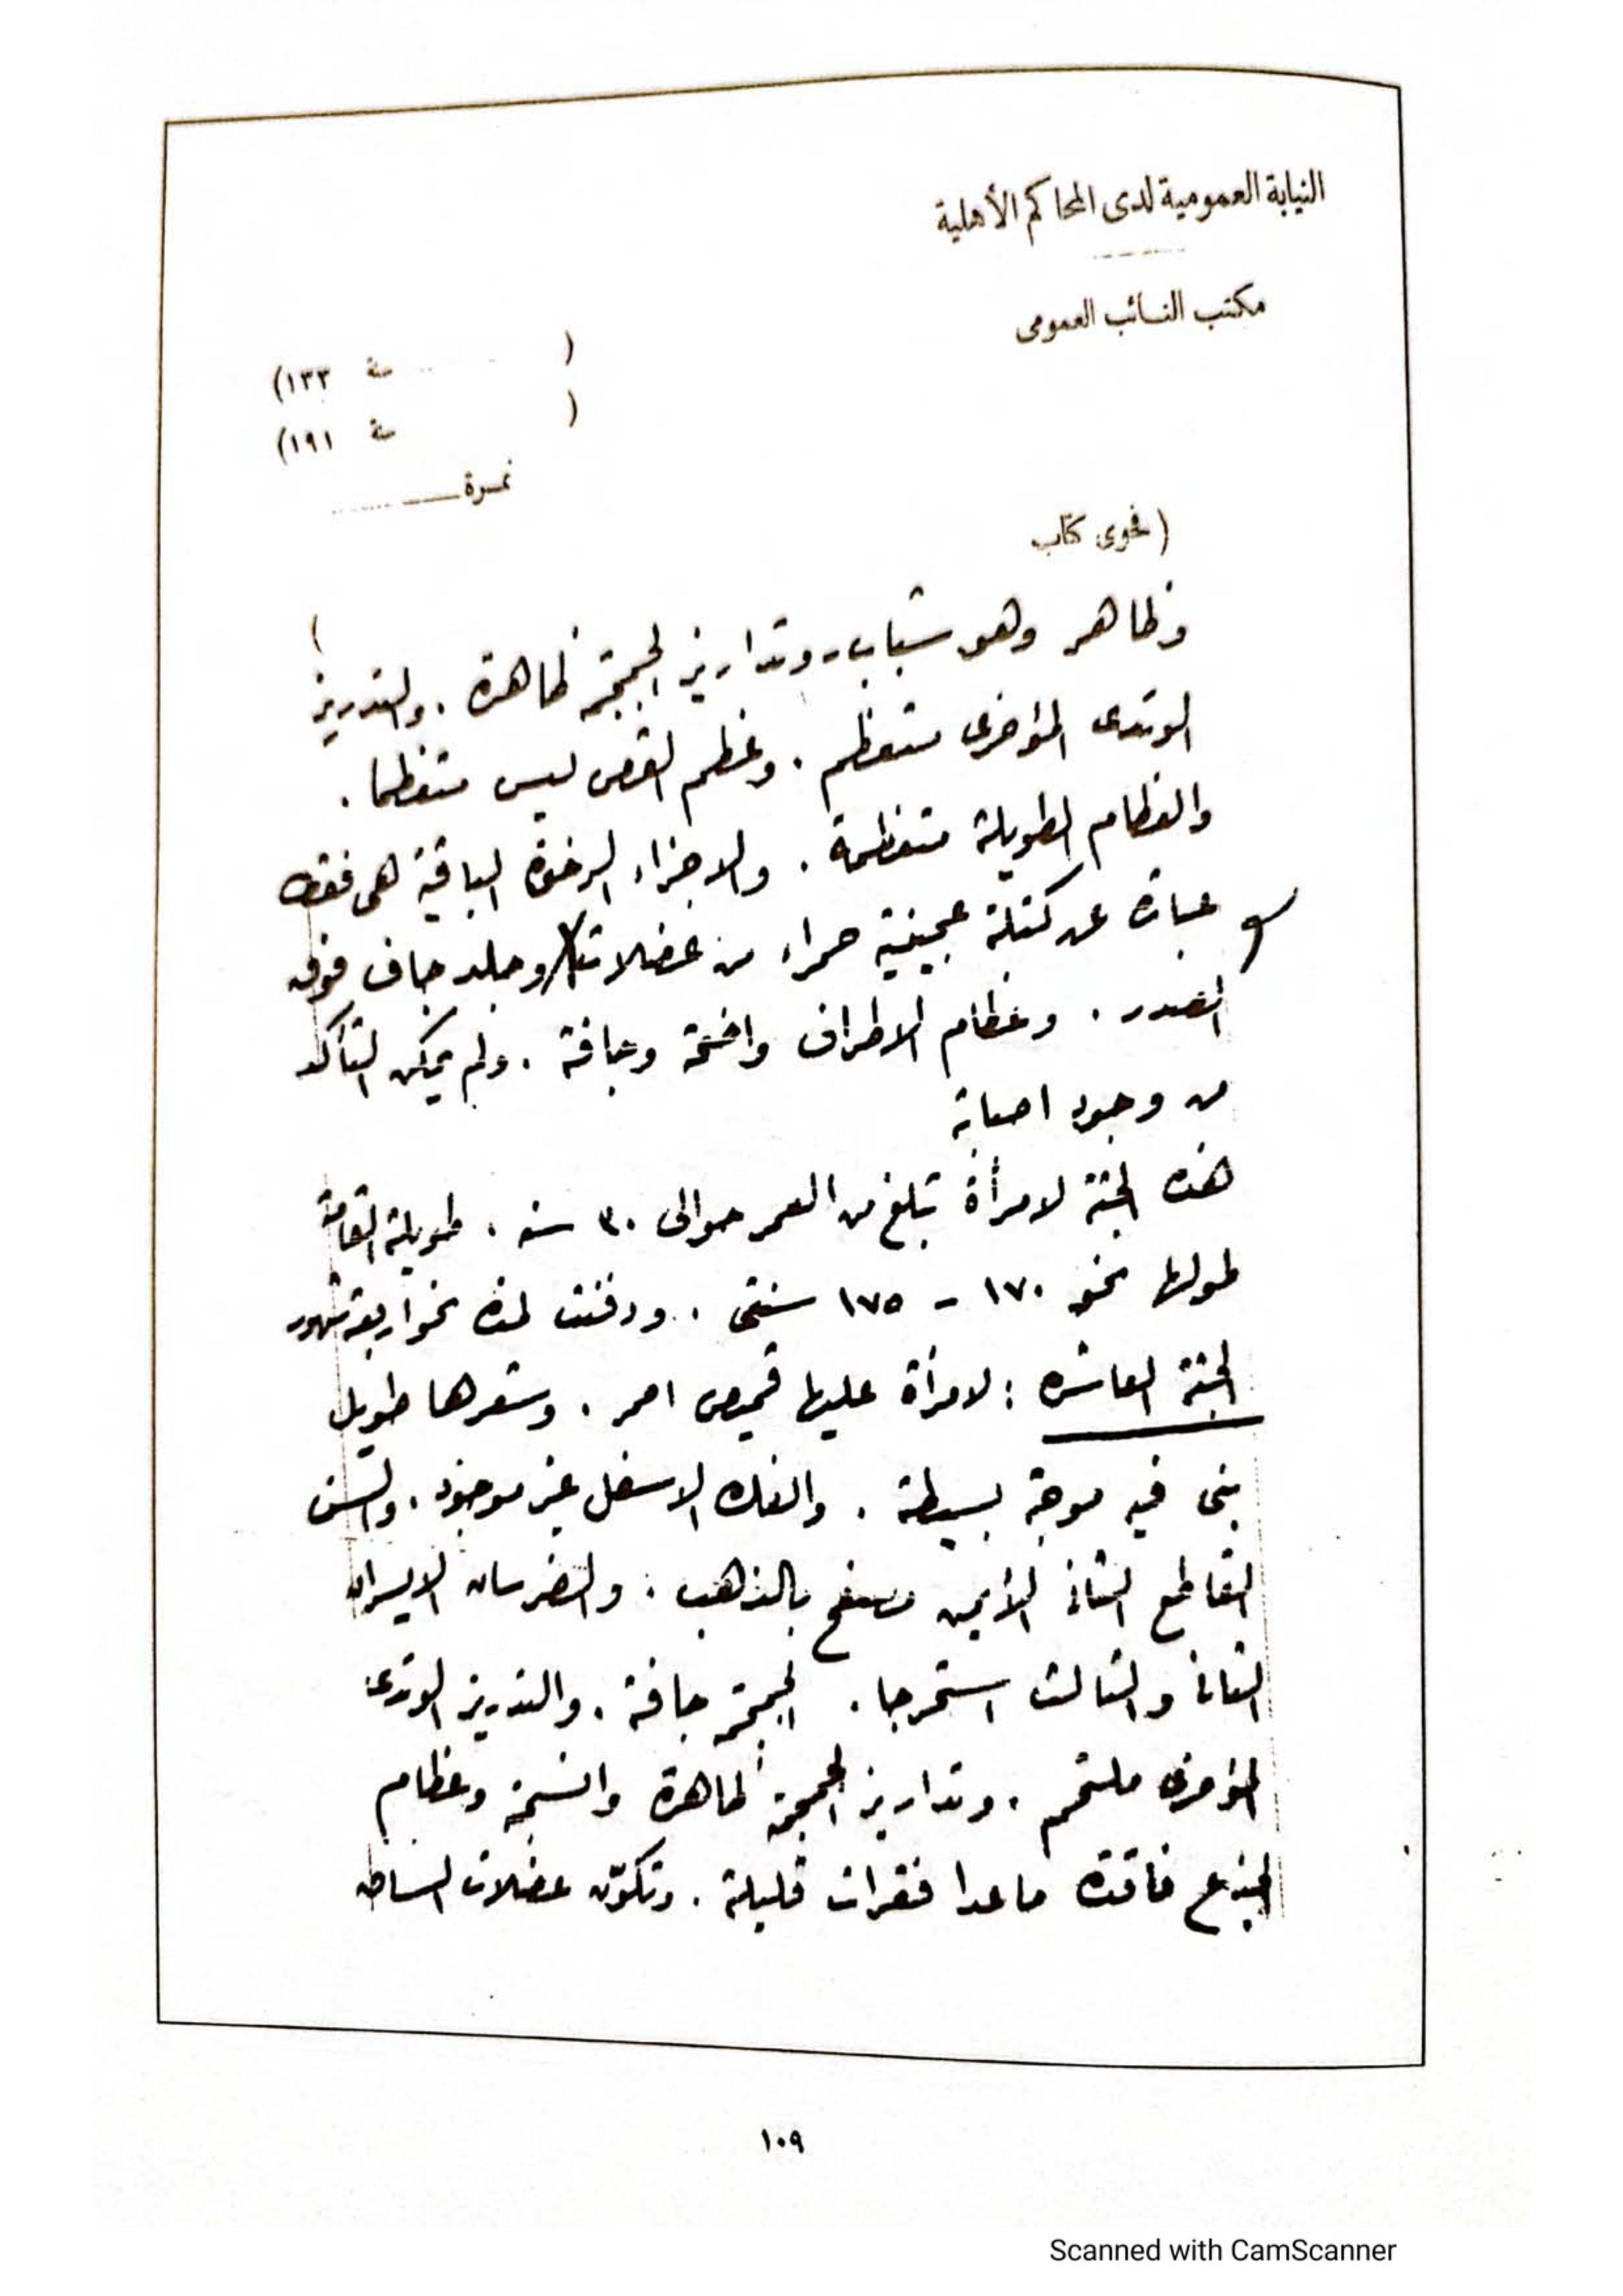 النيابة العمومية لدى المحاكم الأهلية
مكتب النائب العمومى
( سنة ١٣٣)
( سنة ١٩١)
نمرة
( فحوى كتاب
)
وظاهر وهو شباب. وتداريز الجمجمة ظاهرة. والتدريز
الوتدى المؤخرى متعظم. وعظم القص ليس متعظما.
والعظام الطويلة متعظمة. والاجزاء الرخوة الباقية هى فقط
عبارة عن كتلة عجينية حمراء من عضلات وجلد جاف فوق
الصدر. وعظام الاطراف واضحة وجافة. ولم يمكن التأكد
من وجود اصابة
هذه الجثة لامرأة تبلغ من العمر حوالى ٣٠ سنه. طويلة القامة
طولها نحو ١٧٠ - ١٧٥ سنتى. ودفنت لمدة نحو اربعة شهور
الجثة العاشره : لامرأة عليها قميص احمر. وشعرها طويل
بنى فيه موجة بسيطة. والفك الاسفل غير موجود. والسن
القاطع الثانى الأيمن مصفح بالذهب. والضرسان الايسران
الثانى والثالث استخرجا. الجمجمة جافة. والتدريز الوتدى
المؤخرى ملتحم. وتداريز الجمجمة ظاهرة وعظام
الجذع فاقدة ماعدا فقرات قليلة. وتكوّن عضلات الساق
١٠٩
Scanned with CamScanner